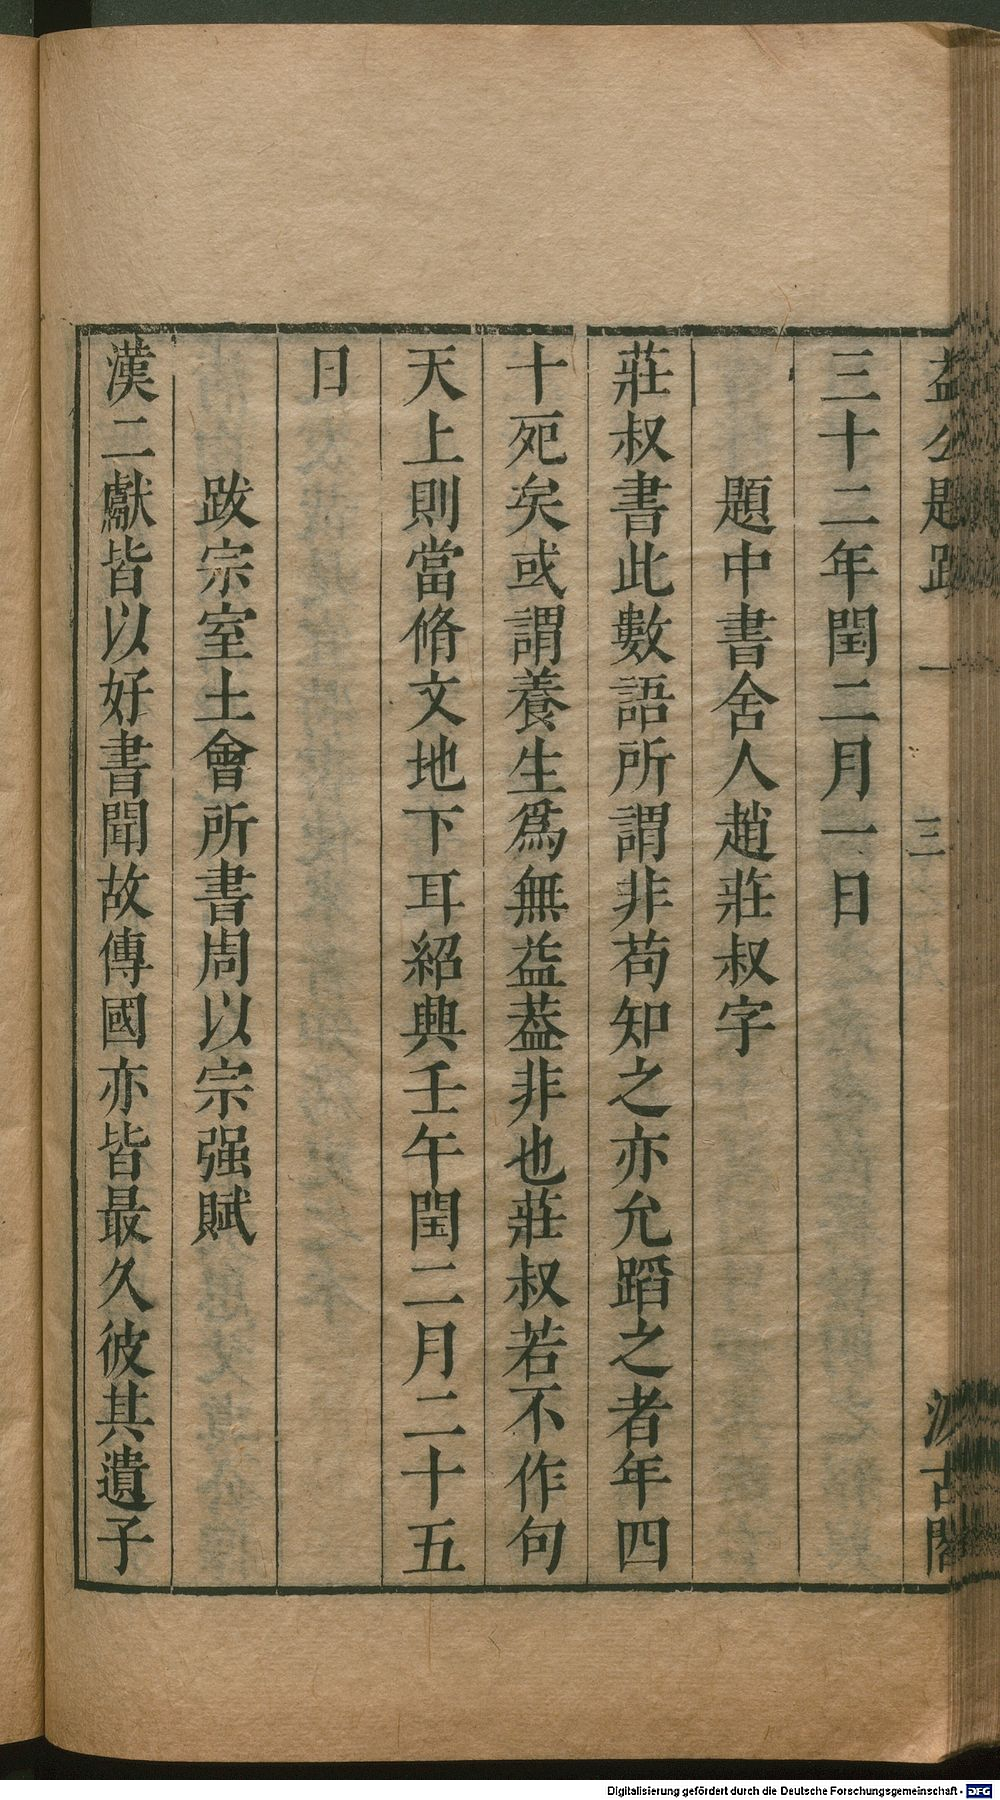 益公題跋 一 三 汲古閣
三十二年閏二月一日
題中書舍人趙莊叔字
莊叔書此數語所謂非苟知之亦允蹈之者年四
十死矣或謂養生爲無益葢非也莊叔若不作句
天上則當脩文地下耳紹興壬午閏二月二十五
日
跋宗室士會所書周以宗强賦
漢二獻皆以好書聞故傳國亦皆最久彼其遺子
Digitalisierung gefördert durch die Deutsche Forschungsgemeinschaft - DFG